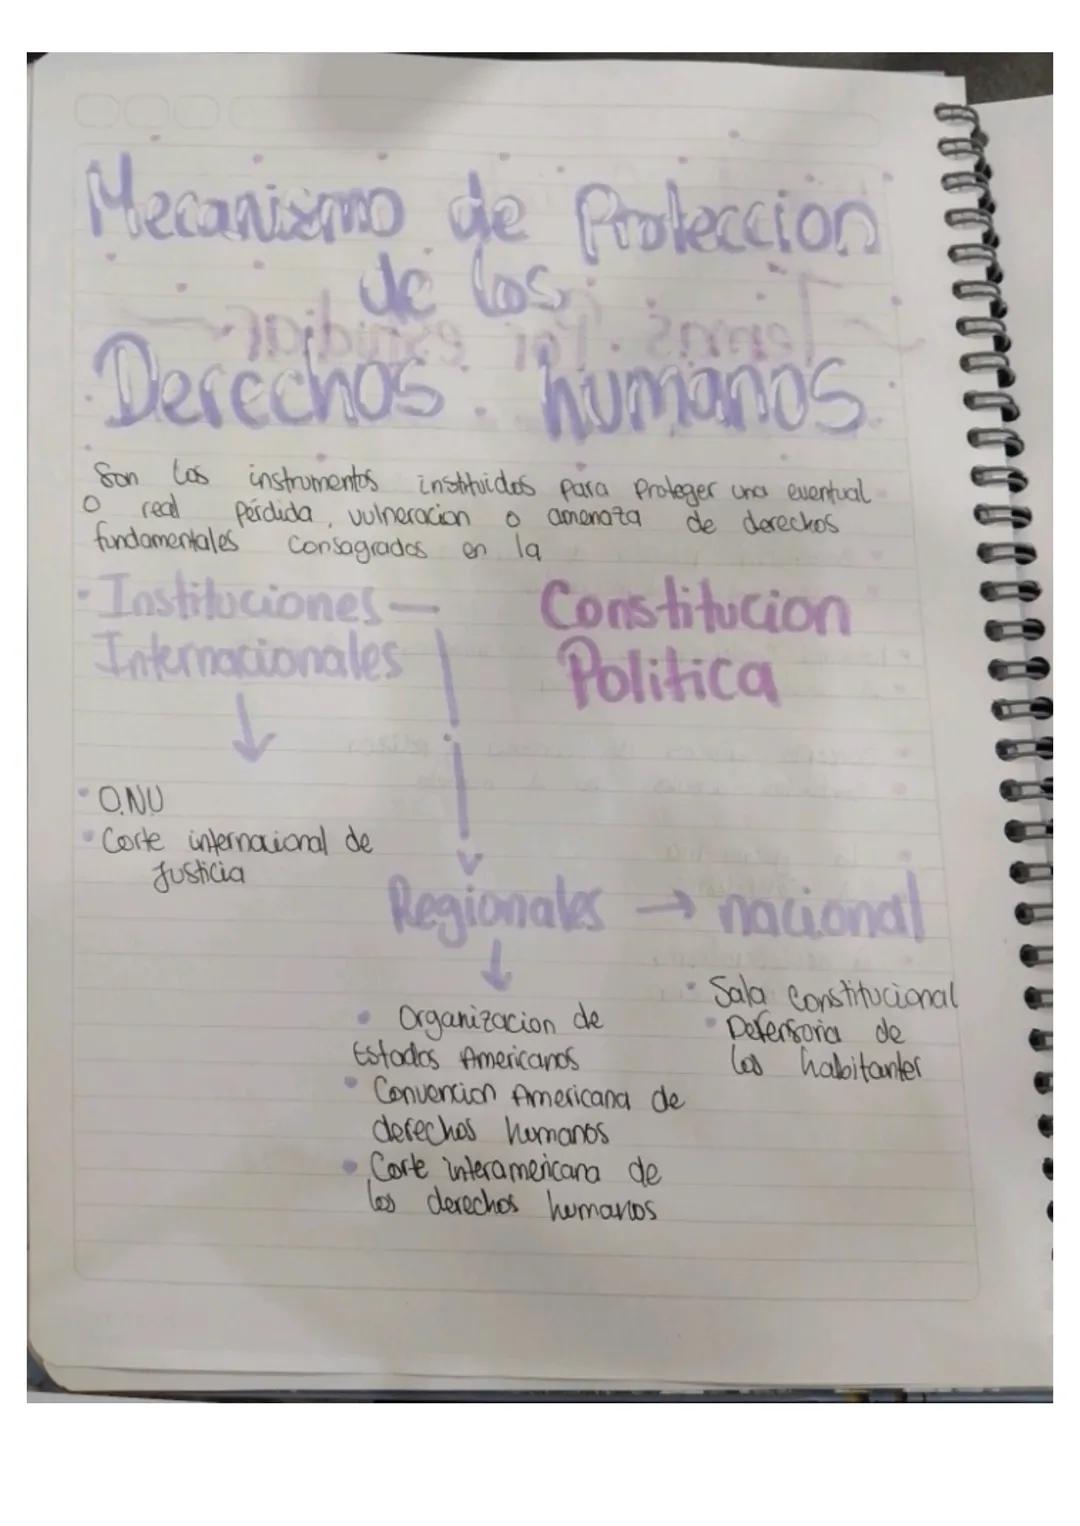 Mecanismo de Proteccion
de los
Derechos humanos
Son los instrumentos instituidos para Proteger una eventual
o real pérdida, vulneracion o amenaza de derechos
fundamentales Consagrados en la
Constitucion
Politica
• Instituciones
Internacionales
• O.NU
• Corte internacional de
Justicia
Regionales → nacional
• Organizacion de
Estados Americanos
• Convencion Americana de
derechos humanos
• Corte interamericana de
los derechos humanos
• Sala Constitucional
• Defensoria de
los habitantes